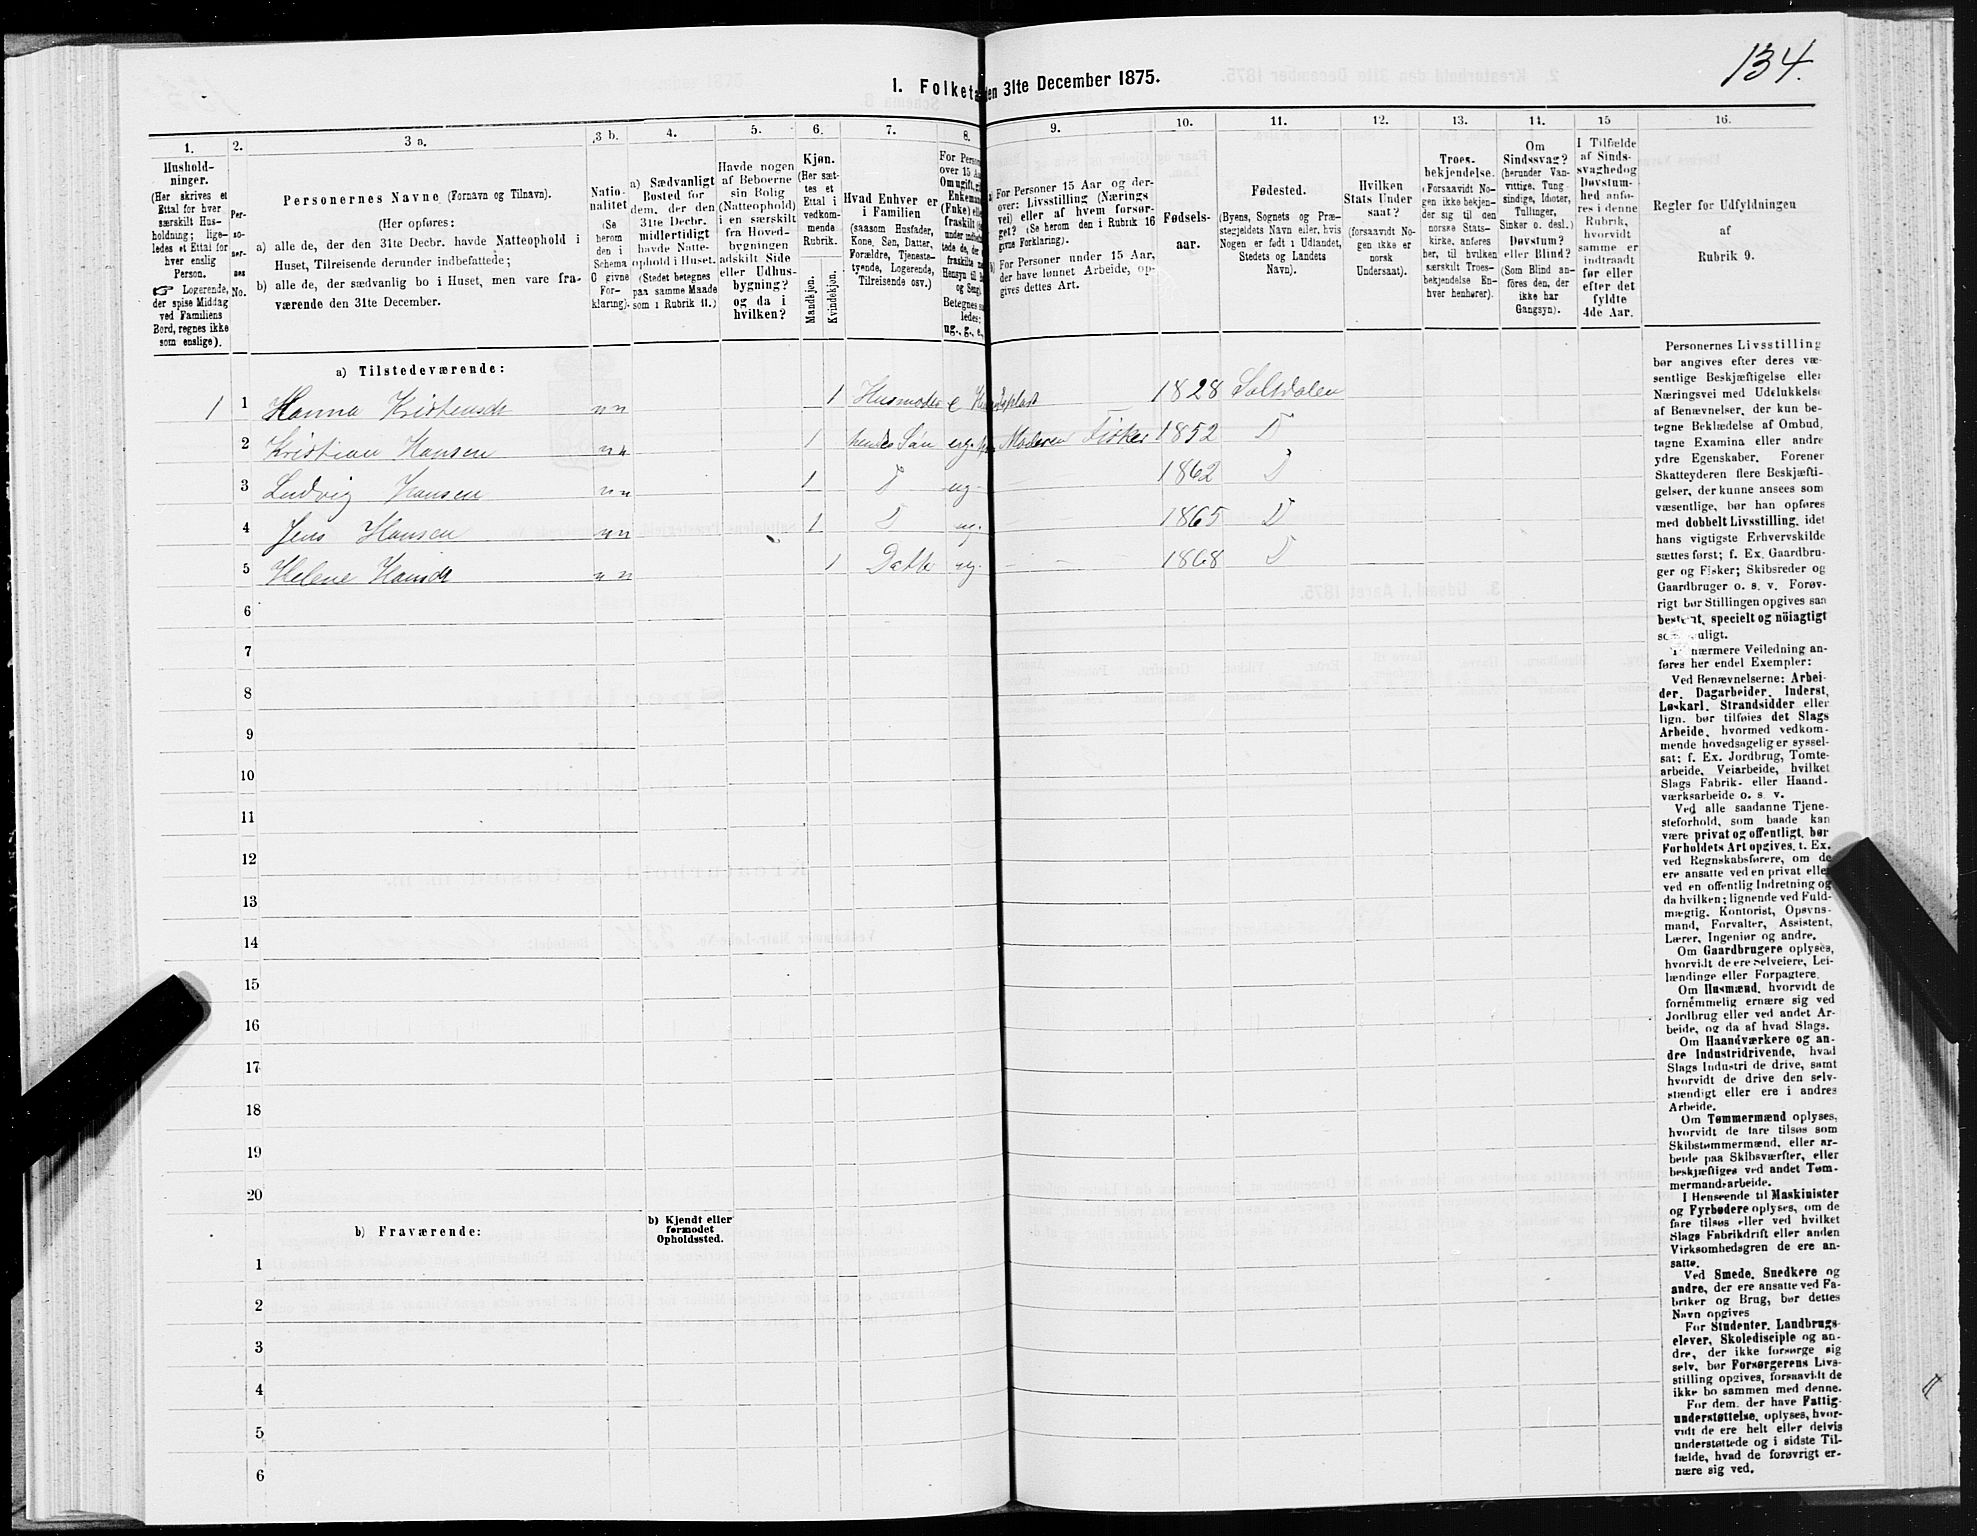 134.
I. Folketæ
en 31te December 1875.
1.
2.
3 a.
3 b.
4.
5.
6.
7.
8.
9.
10.
11.
12.
13.
14.
15
16.
Hushold-
ninger.
(Her skrives et
Ettal for hver
særskilt Hus-
holdning; lige-
ledes et Ettal for
hver enslig
Person.
☞ Logerende,
der spise Middag
ved Familiens
Bord, regnes ikke
som enslige).
Per-
so-
ner-
nes
No.
Personernes Navne (Fornavn og Tilnavn).
(Her opføres:
a) alle de, der den 31te Decbr. havde Natteophold i
Huset, Tilreisende derunder indbefattede;
b) alle de, der sædvanlig bo i Huset, men vare fra-
værende den 31te December.
Natio-
nalitet
(Se
herom
den i
Schema
G givne
For-
klaring).
a) Sædvanligt
Bosted for
dem, der den
31te Decbr.
midlertidigt
havde Natte-
ophold i Huset.
(Stedet betegnes
paa samme Maade
som i Rubrik 11.)
Havde nogen
af Beboerne
sin Bolig
(Natteophold)
i en særskilt
fra Hoved-
bygningen
adskilt Side
eller Udhus-
bygning?
og da i
hvilken?
Kjøn.
(Her sæt-
tes et
Ettal i
vedkom-
mende
Rubrik.
Mandkjøn.
Kvindekjøn.
Hvad Enhver er
i Familien
(saasom Husfader,
Kone, Søn, Datter,
Forældre, Tjeneste-
tyende, Logerende,
Tilreisende osv.)
For Perso
over 15 Aa
Om ugift, gi
Enkeman
(Enke) elle
fraskilt
a) For Personer 15 Aar og der-
over: Livsstilling (Nærings
vei) eller af hvem forsør-
get? (Se herom den i Rubrik 16
givne Forklaring).
b) For Personer under 15 Aar,
der have lønnet Arbeide, op-
gives dettes Art.
Fødsels-
aar.
Fødested.
(Byens, Sognets og Præ-
stegjeldets Navn eller, hvis
Nogen er født i Udlandet,
Stedets og Landets
Navn).
Hvilken
Stats Under
saat?
(forsaavidt No-
gen ikke er
norsk
Undersaat).
Troes-
bekjendelse.
(Forsaavidt No-
gen ikke bekjen-
der sig til den
norske Stats-
kirke, anføres
her, til hvilken
særskilt Troes-
bekjendelse En-
hver henhører).
Om
Sindssvag?
(herunder Van-
vittige, Tung
sindige, Idioter,
Tullinger,
Sinker o. desl.)
Døvstum?
eller Blind?
(Som Blind an-
føres den, der
ikke har
Gangsyn).
I Tilfælde
af Sinds-
svaghed og
Døvstum-
hed anfø-
res i denne
Rubrik,
hvorvidt
samme er
indtraadt
før eller
efter det
fyldte
4de Aar.
Regler for Udfyldningen
af
Rubrik 9.
a) Tilstedeværende:
1 1 Hanna Kristensdr n n 1 Husmoder e 1828 Saltdalen
2 Kristian Hansen n n 1 hendes Søn ug. Moderen Fisker 1852 D
3 Ludvig Hansen n n 1 D ug. 1862 D
4 Jens Hansen n n 1 D ug. 1865 D
5 Helene Hansdr n n 1 Datter ug. 1868 D
6
7
8
9
10
11
12
13
14
15
16
17
18
19
20
b) Fraværende:
b) Kjendt eller
formodet
Opholdssted.
1
2
3
4
5
6
Personernes Livsstilling
bør angives efter deres væ-
sentlige Beskjæftigelse eller
Næringsvei med Udelukkelse
af Benævnelser, der kun be-
tegne Beklædelse af Ombud,
tagne Examina eller andre
ydre Egenskaber. Forener
Skatteyderen flere Beskjæfti-
gelser, der kunne ansees som
væsentlige, bør han opføres
med dobbelt Livsstilling, idet
hans vigtigste Erhvervskilde
sættes først; f. Ex. Gaardbru-
ger og Fisker; Skibsreder og
Gaardbruger o. s. v. Forøv-
rigt bør Stillingen opgives saa
bestemt, specielt og nöiagtigt
som muligt.
Til nærmere Veiledning an-
føres her endel Exempler:
Ved Benævnelserne: Arbei-
der, Dagarbeider, Inderst,
Løskarl, Strandsidder eller
lign. bør tilføies det Slags
Arbeide, hvormed vedkom-
mende hovedsagelig er syssel-
sat; f. Ex. Jordbrug, Tomte-
arbeide, Veiarbeide, hvilket
Slags Fabrik- eller Haand-
værksarbeide o. s. v.
Ved alle saadanne Tjene-
steforhold, som baade kan
være privat og offentligt, bør
Forholdets Art opgives, f. Ex.
ved Regnskabsførere, om de
ere ansatte ved en privat eller
ved en offentlig Indretning og
da hvilken; lignende ved Fuld-
mægtig, Kontorist, Opsyns-
mand, Forvalter, Assistent,
Lærer, Ingeniør og andre.
Om Gaardbrugere oplyses,
hvorvidt de ere Selveiere, Lei-
lændinge eller Forpagtere.
Om Husmænd, hvorvidt de
fornemmelig ernære sig ved
Jordbrug eller ved andet Ar-
beide, og da af hvad Slags.
Om Haandværkere og an-
dre Industridrivende, hvad
Slags Industri de drive, samt
hvorvidt de drive den selv-
stændigt eller ere i andres
Arbeide.
Om Tømmermænd oplyses,
hvorvidt de fare tilsøs som
Skibstømmermænd, eller ar-
beide paa Skibsværfter, eller
beskjæftiges ved andet Tøm-
mermandsarbeide.
I Henseende til Maskinister
og Fyrbødere oplyses, om de
fare tilsøs eller ved hvilket
Slags Fabrikdrift eller anden
Virksomhedsgren de ere an-
satte.
Ved Smede, Snedkere og
andre, der ere ansatte ved Fa-
briker og Brug, bør dettes
Navn opgives
For Studenter, Landbrugs-
elever, Skoledisciple og an-
dre, der ikke forsørge sig
selv, bør Forsørgerens Livs-
stilling opgives, forsaavidt de
ikke bo sammen med denne.
For dem, der have Fattig-
understøttelse, oplyses, hvor-
vidt de ere helt eller delvis
understøttede og i sidste Til-
fælde, hvad de forøvrigt er-
nære sig ved.